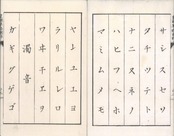 サシスセソ
タチツテト
ナニヌネノ
ハヒフヘホ
マミムメモ
ヤイユエヨ
ラリルレロ
ワヰウヱヲ
濁音
ガギグゲゴ